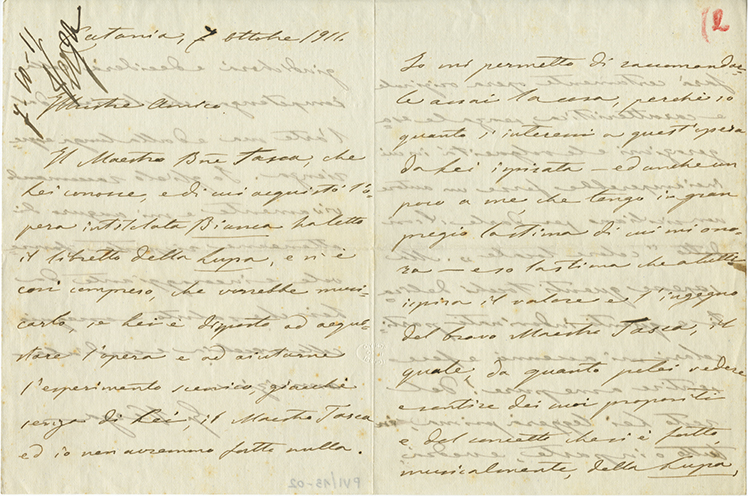 7-10-11
Verga
Catania, 7 ottobre 1911.
Illustre Amico.
Il Maestro B.ne Tasca, che
Lei conosce, e di cui acquistò l'o-
pera intitolata Bianca ha letto
il libretto della Lupa, e vi è
così compreso, che vorrebbe musi-
carlo, se Lei è disposto ad acqui-
stare l'opera e ad aiutarne
l'esperimento scenico, giacchè
senza di Lei il Maestro Tasca
ed io non avremmo fatto nulla.
PVI/13-02
(2
Io mi permetto di raccomandar-
le assai la cosa, perchè so
quanto s'interessi a quest'opera
da Lei ispirata — ed anche un
poco a me, che tengo in gran
pregio la stima di cui mi ono-
ra — e so la stima che a tutti
ispira il valore e l'ingegno
del bravo Maestro Tasca, il
quale, da quanto potei vedere
e sentire dei suoi propositi
e del concetto che si è fatto,
musicalmente, della Lupa,